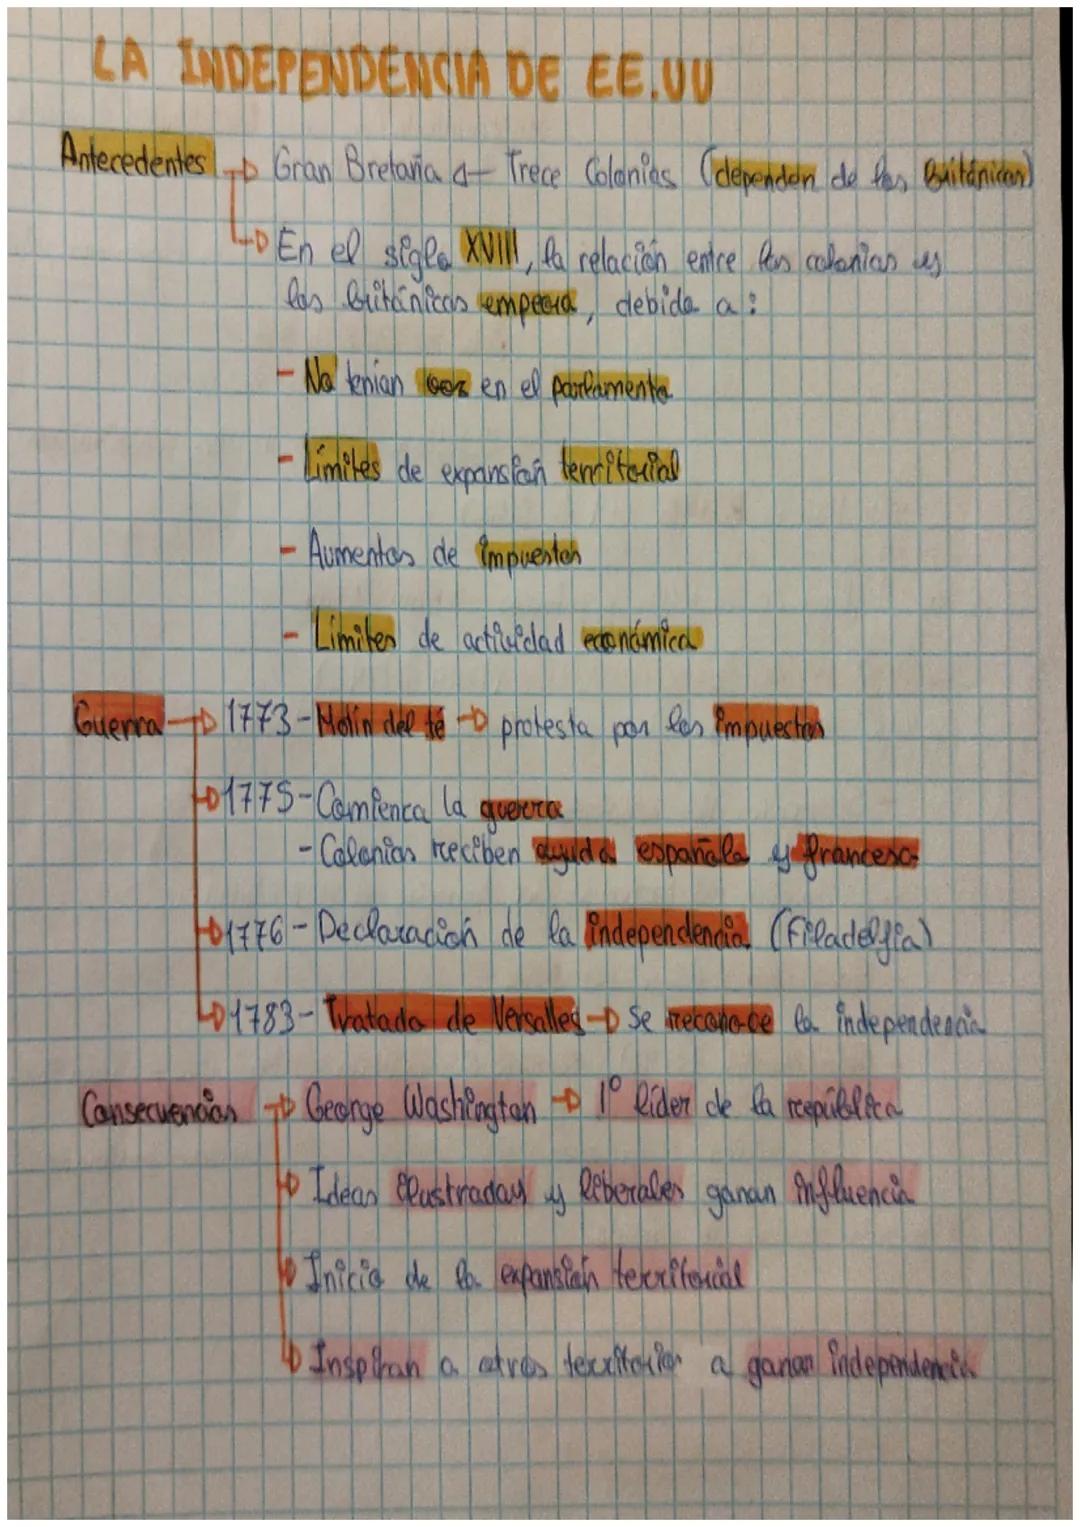 LA INDEPENDENCIA DE EE.UU
Antecedentes → Gran Bretaña ← Trece Colonias (dependen de los Británicos)
→ En el siglo XVIII, la relación entre las colonias y
los británicos empeora, debido a:
- No tenían voz en el parlamento
- Límites de expansión territorial
- Aumentos de impuestos
- Límites de actividad económica
Guerra → 1773 - Motín del té → protesta por los impuestos
→ 1775 - Comienza la guerra
- Colonias reciben ayuda española y francesa
→ 1776 - Declaración de la independencia (Filadelfia)
→ 1783 - Tratado de Versalles → Se reconoce la independencia
Consecuencias → George Washington → 1º líder de la república
→ Ideas ilustradas y liberales ganan influencia
→ Inicio de la expansión territorial
→ Inspiran a otros territorios a ganar independencia